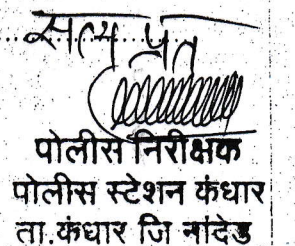 सत्य प्रत
पोलीस निरीक्षक
पोलीस स्टेशन कंधार
ता.कंधार जि नांदेड